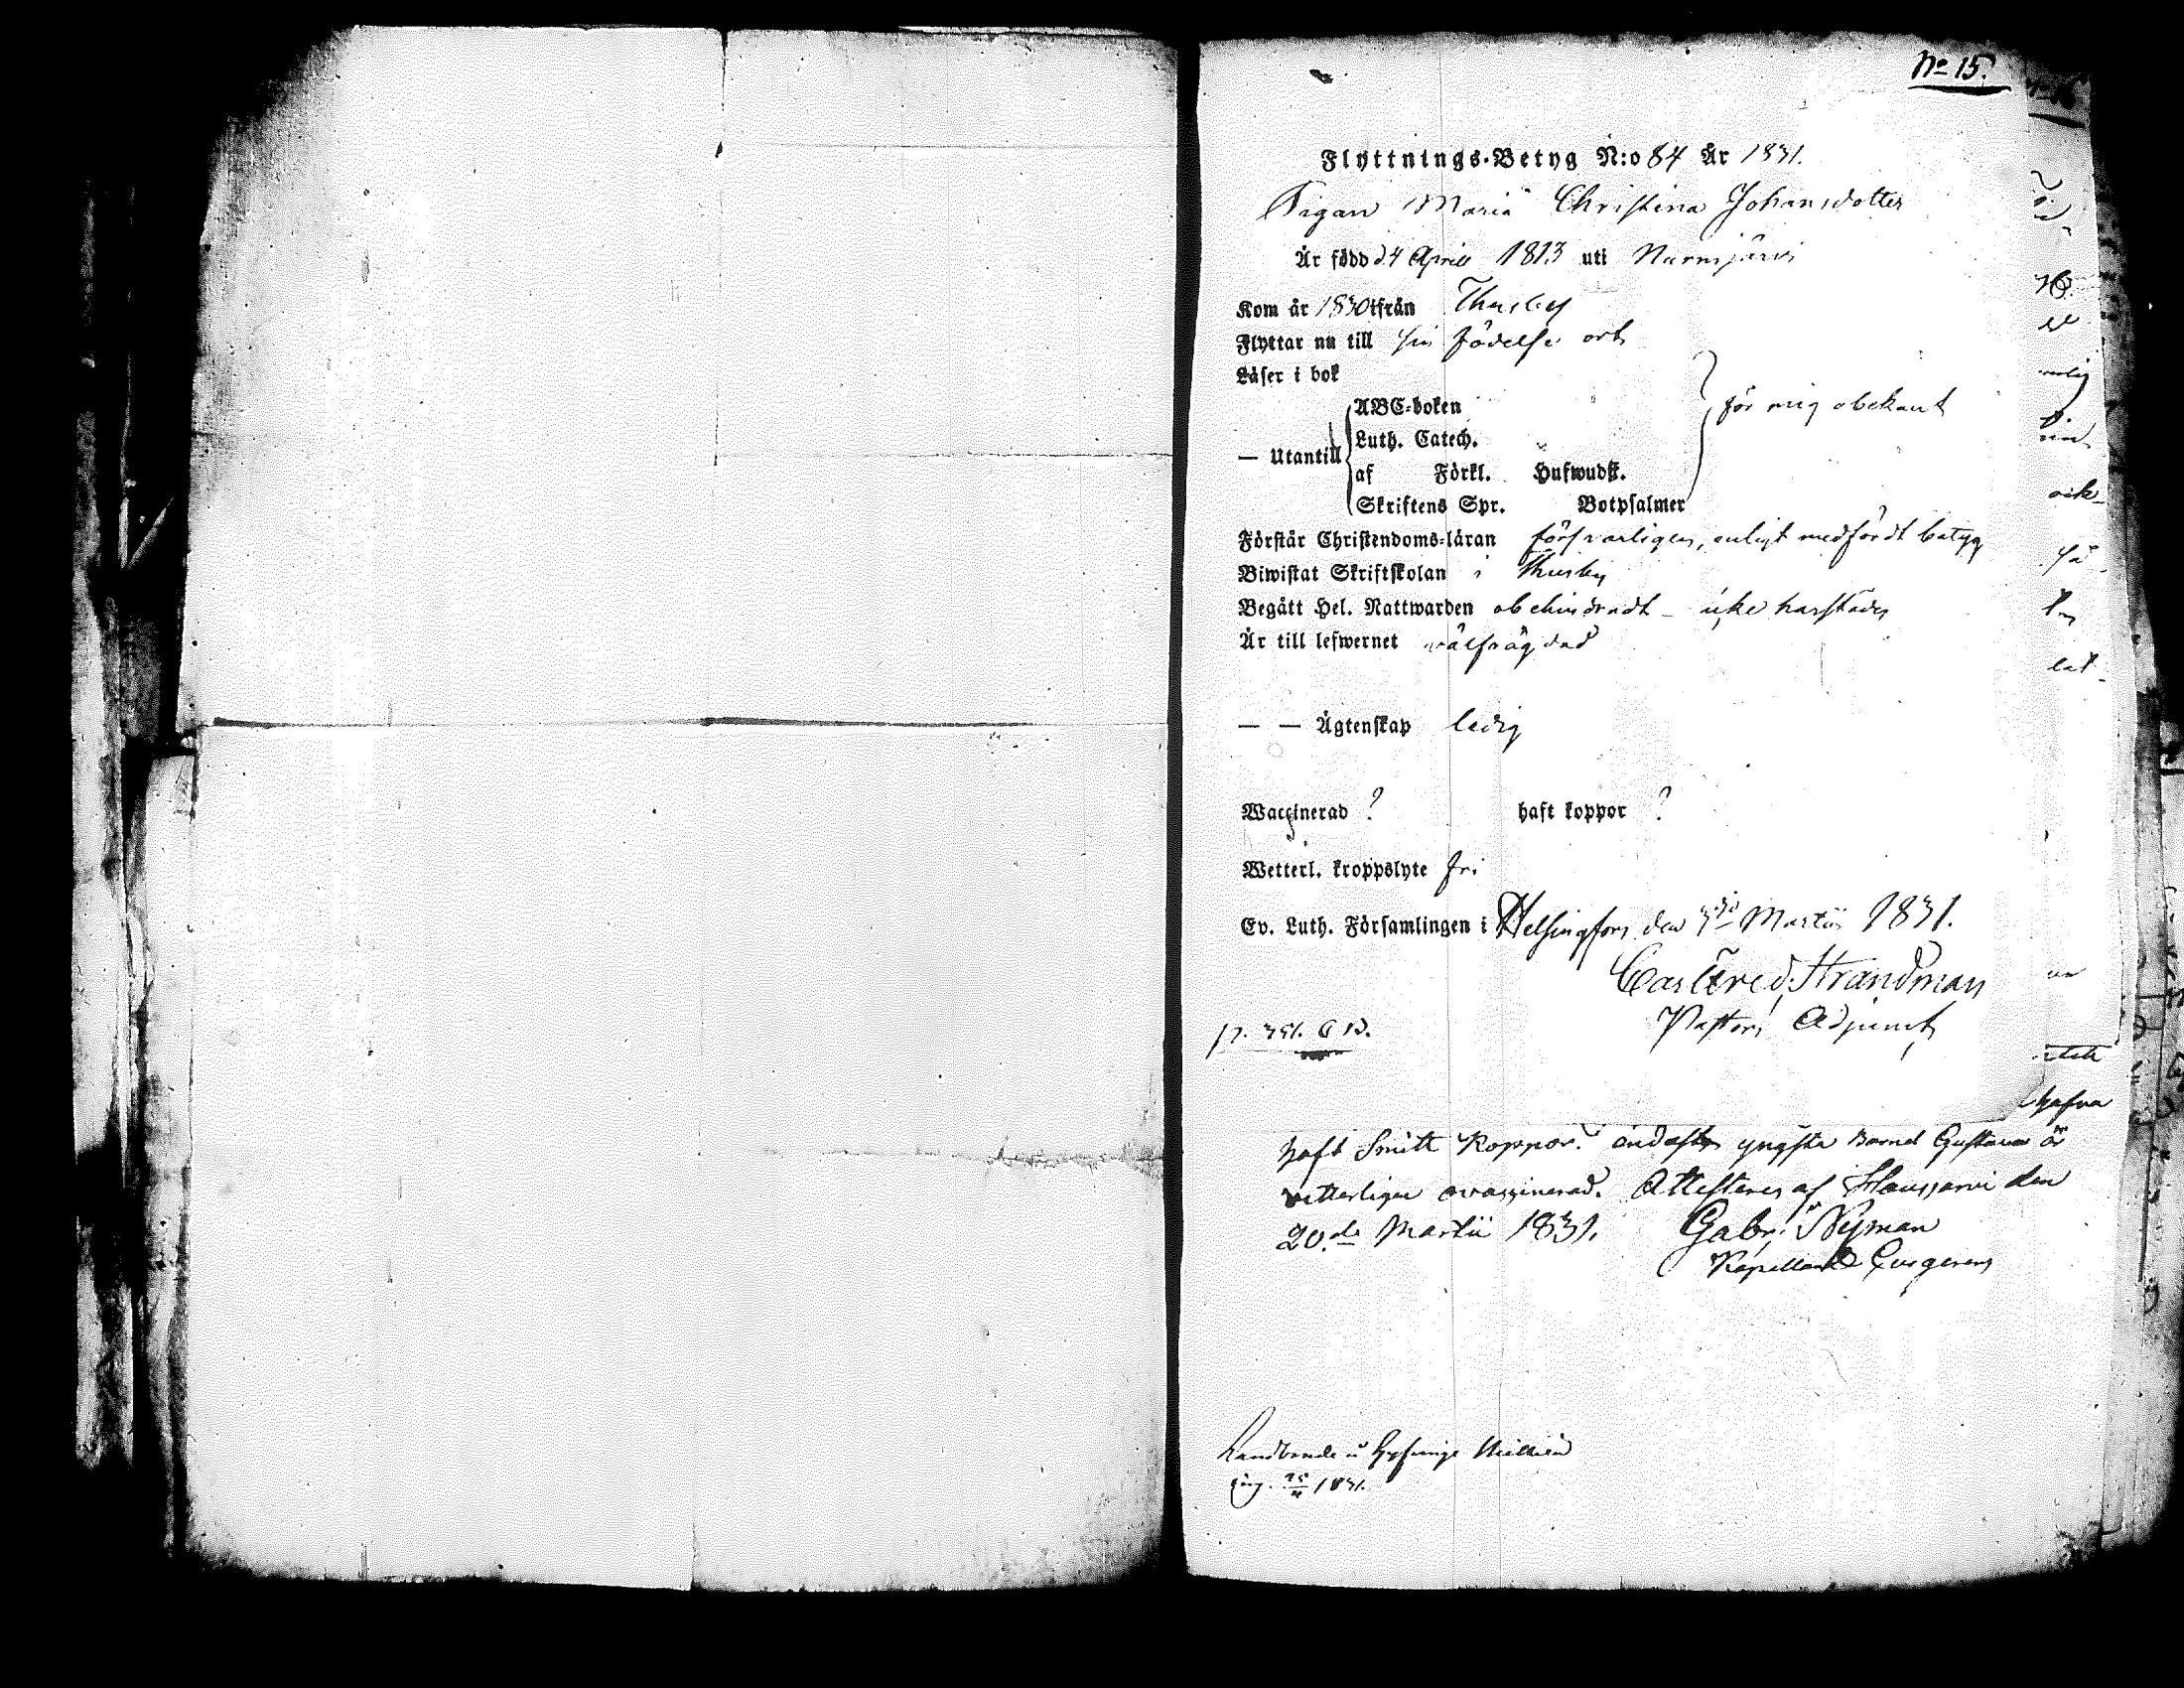 No 15.
Flyttnings-Betyg N:o 84 År 1831.
Pigan Maria Christina Johansdotter
Är född d 4 April 1813 uti Nurmijärvi
Kom år 1830 ifrån Thusby
Flyttar nu till sin födelse ort
Läser i bok
ABC-boken
för mig obekant
Luth. Catech.
— Utantill
af Förkl. Hufwudst.
Skriftens Spr. Botpsalmer
Förstår Christendoms-läran försvarligen, enligt medfördt betyg
Biwistat Skriftskolan i Thusby
Begått Hel. Nattwarden obehindradt - icke härstädes
Är till lefwernet välfrägdad
— — Ägtenskap ledig
Waccinerad ? haft koppor ?
Wetterl. kroppslyte fri
Ev. Luth. Församlingen i Helsingfors den Martii 1831.
Carl Fred. Strandman
Pastors Adjunct
hafva
haft Smitt Koppor. endast yngsta Barnet Gustava är
vetterligen ovaccinerad. Attesteras af Hausjärvi den
20de Martii 1831. Gabr. Nyman
Kapellans
1831.